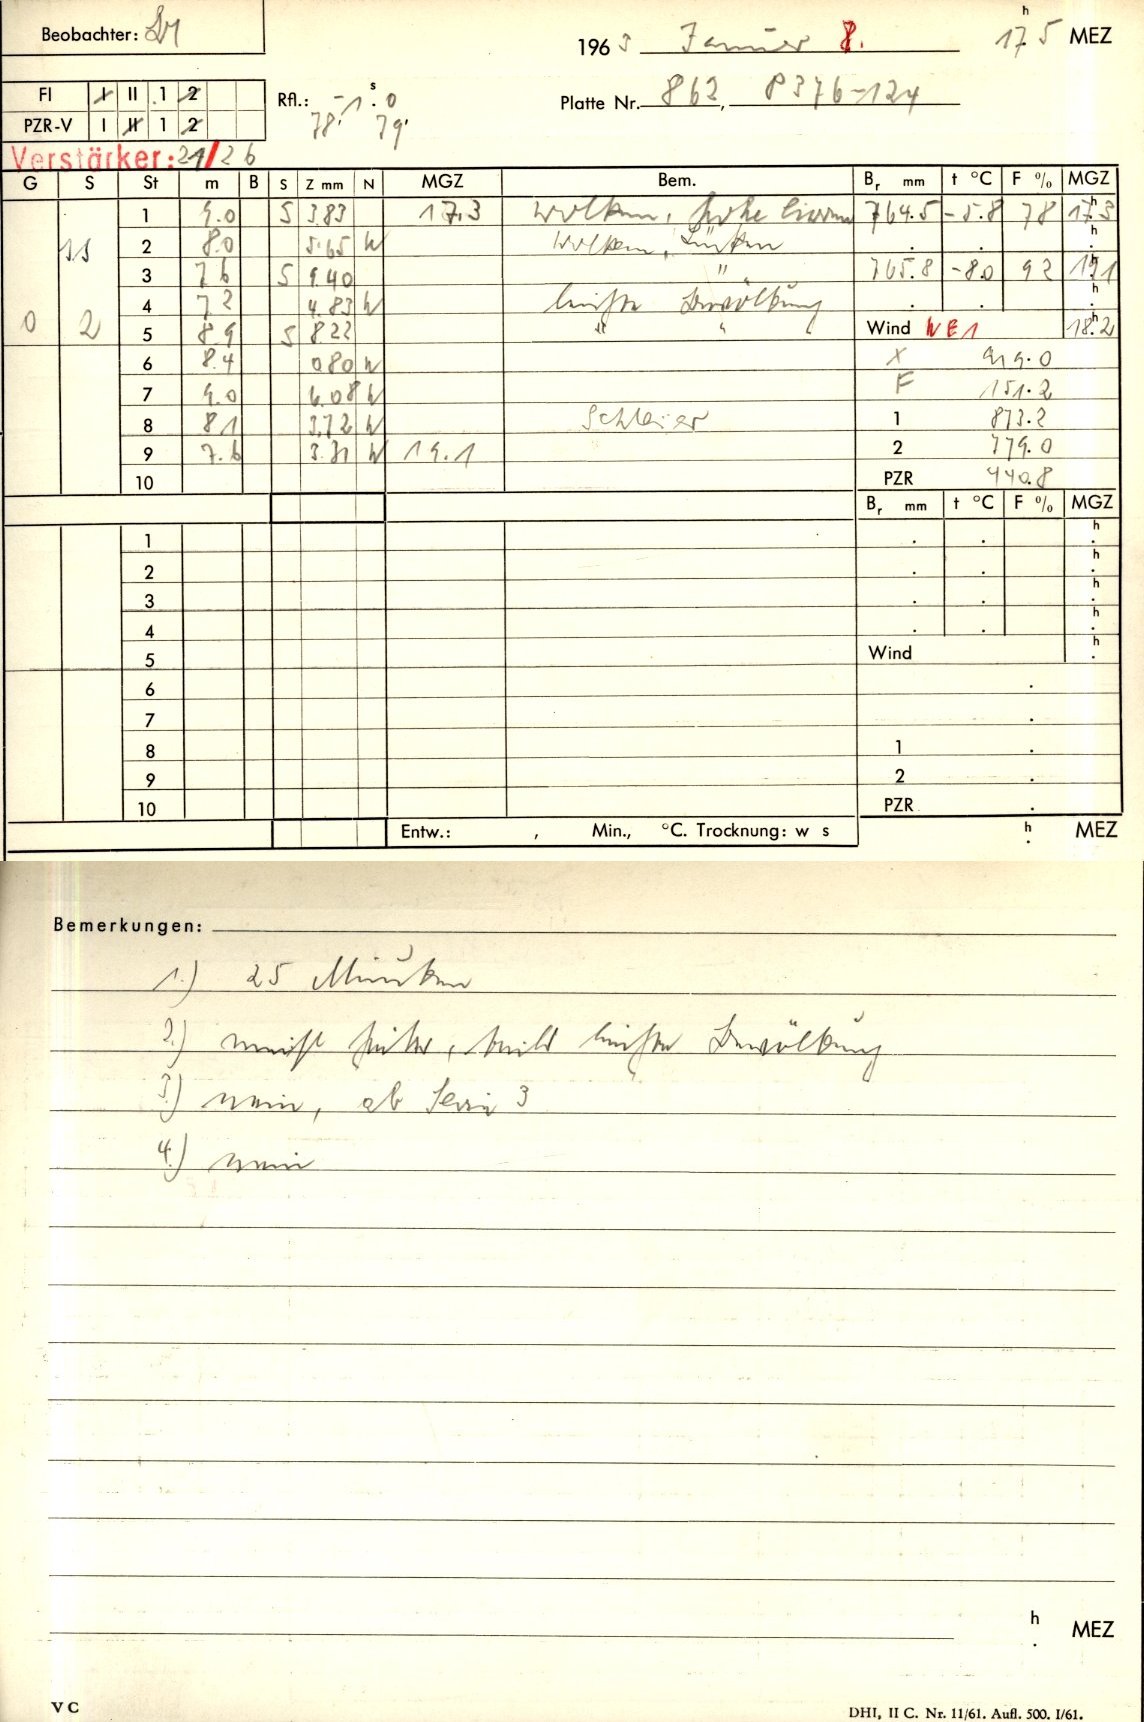 Beobachter:
1963 Januar 8. 17h5 MEZ
FI I II 1 2
PZR-V I II 1 2
Rfl.: -1s.0
78' 79'
Platte Nr. 862, 8376-124
Verstärker: 21/26
G S St m B S Z mm N MGZ Bem. Br mm t °C F % MGZ
1 9.0 S 3.83 17.3 Wolken, hohe 764.5 -5.8 78 17h3
11 2 8.0 5.65 W Wolken, Lücken . . h.
3 7.6 S 9.40 " 765.8 -8.0 92 19h1
4 7.2 4.83 W leichte Bewölkung . . h.
0 2 5 8.9 S 8.22 " " Wind NE1 18h.2
6 8.4 0.80 W X 919.0
7 9.0 6.08 W F 151.2
8 8.1 3.72 W Schleier 1 873.2
9 7.6 3.31 W 19.1 2 779.0
10 PZR 440.8
Br mm t °C F % MGZ
1 . . h.
2 . . h.
3 . . h.
4 . . h.
5 Wind h.
6 .
7 .
8 1 .
9 2 .
10 PZR .
Entw.: , Min., °C. Trocknung: w s h. MEZ
Bemerkungen:
1.) 25 Minuten
2.) meist heiter, teils leichte Bewölkung
3.) nein, ab Serie 3
4.) nein
h. MEZ
V C
DHI, II C. Nr. 11/61. Aufl. 500. I/61.